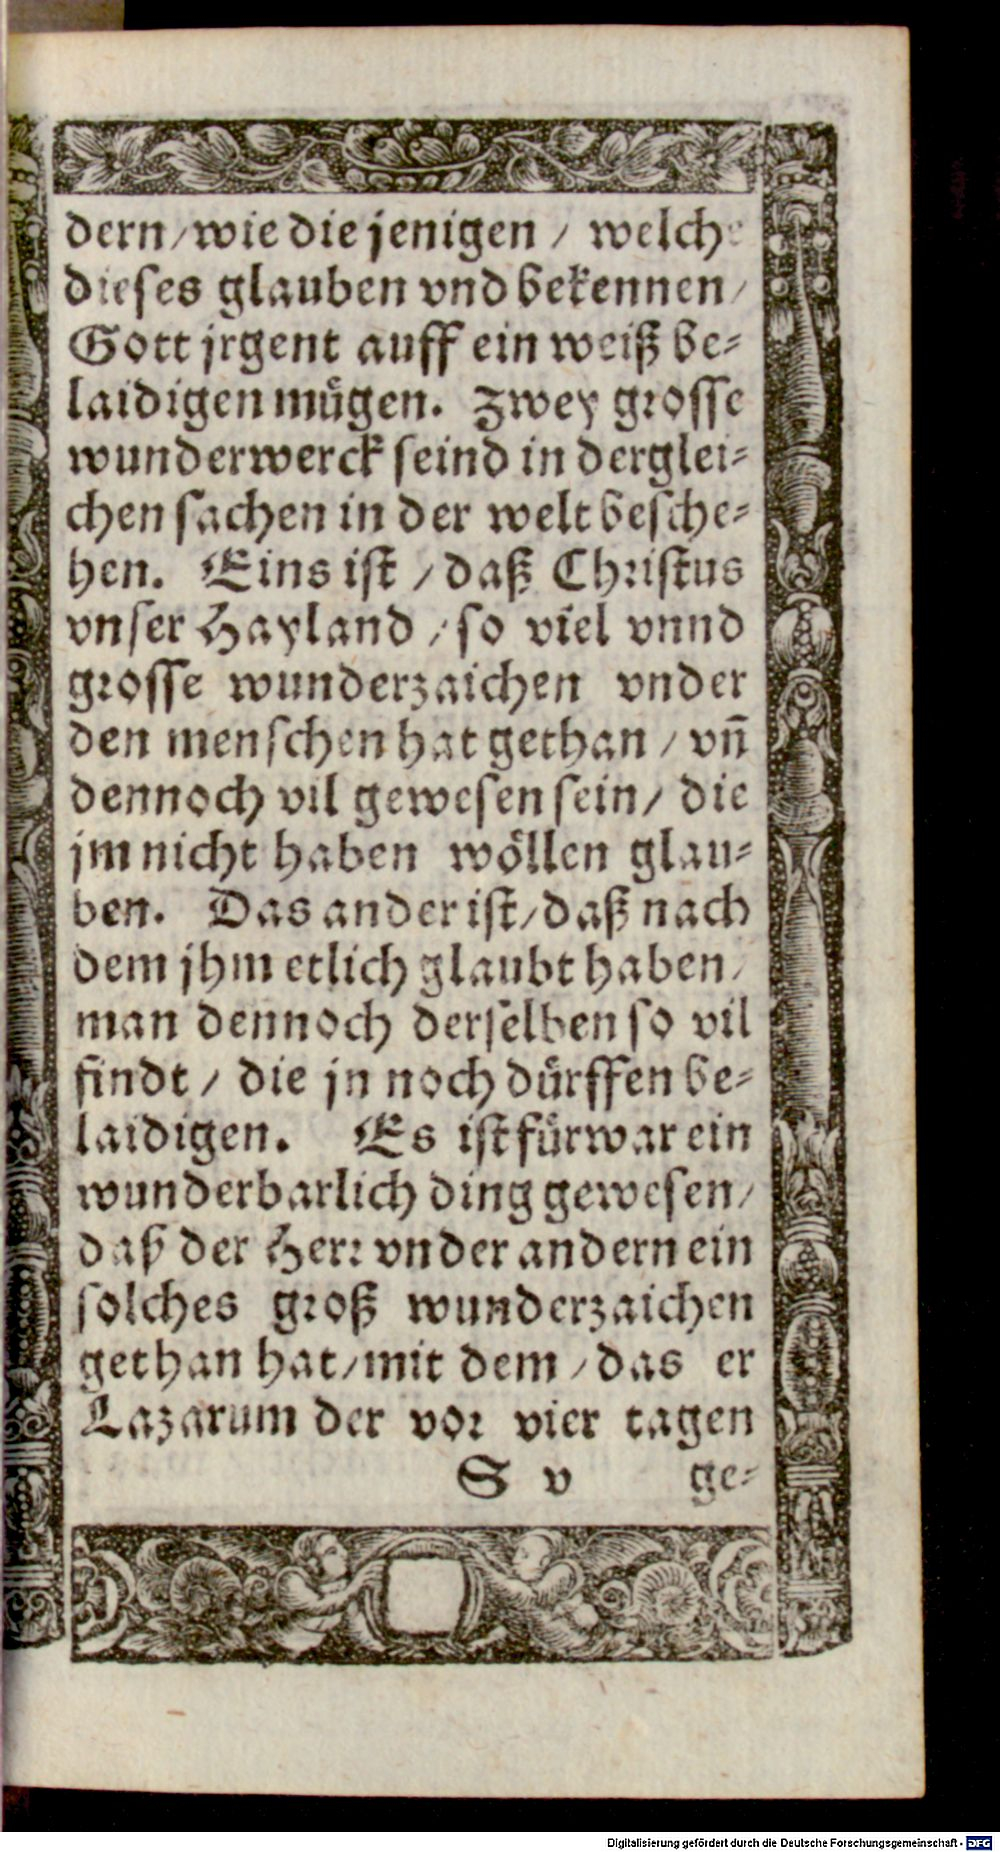 dern/wie die jenigen / welche
dieses glauben vnd bekennen/
Gott jrgent auff ein weiß be⸗
laidigen mügen. Zwey grosse
wunderwerck seind in derglei⸗
chen sachen in der welt besche⸗
hen. Eins ist / daß Christus
vnser Hayland / so viel vnnd
grosse wunderzaichen vnder
den menschen hat gethan / vñ
dennoch vil gewesen sein/ die
jm nicht haben wöllen glau⸗
ben. Das ander ist/daß nach
dem jhm etlich glaubt haben/
man dennoch derselben so vil
findt / die jn noch dürffen be⸗
laidigen. Es ist fürwar ein
wunderbarlich ding gewesen/
daß der Herr vnder andern ein
solches groß wunderzaichen
gethan hat/mit dem /das er
Lazarum der vor vier tagen
S v ge⸗
Digitalisierung gefördert durch die Deutsche Forschungsgemeinschaft - DFG